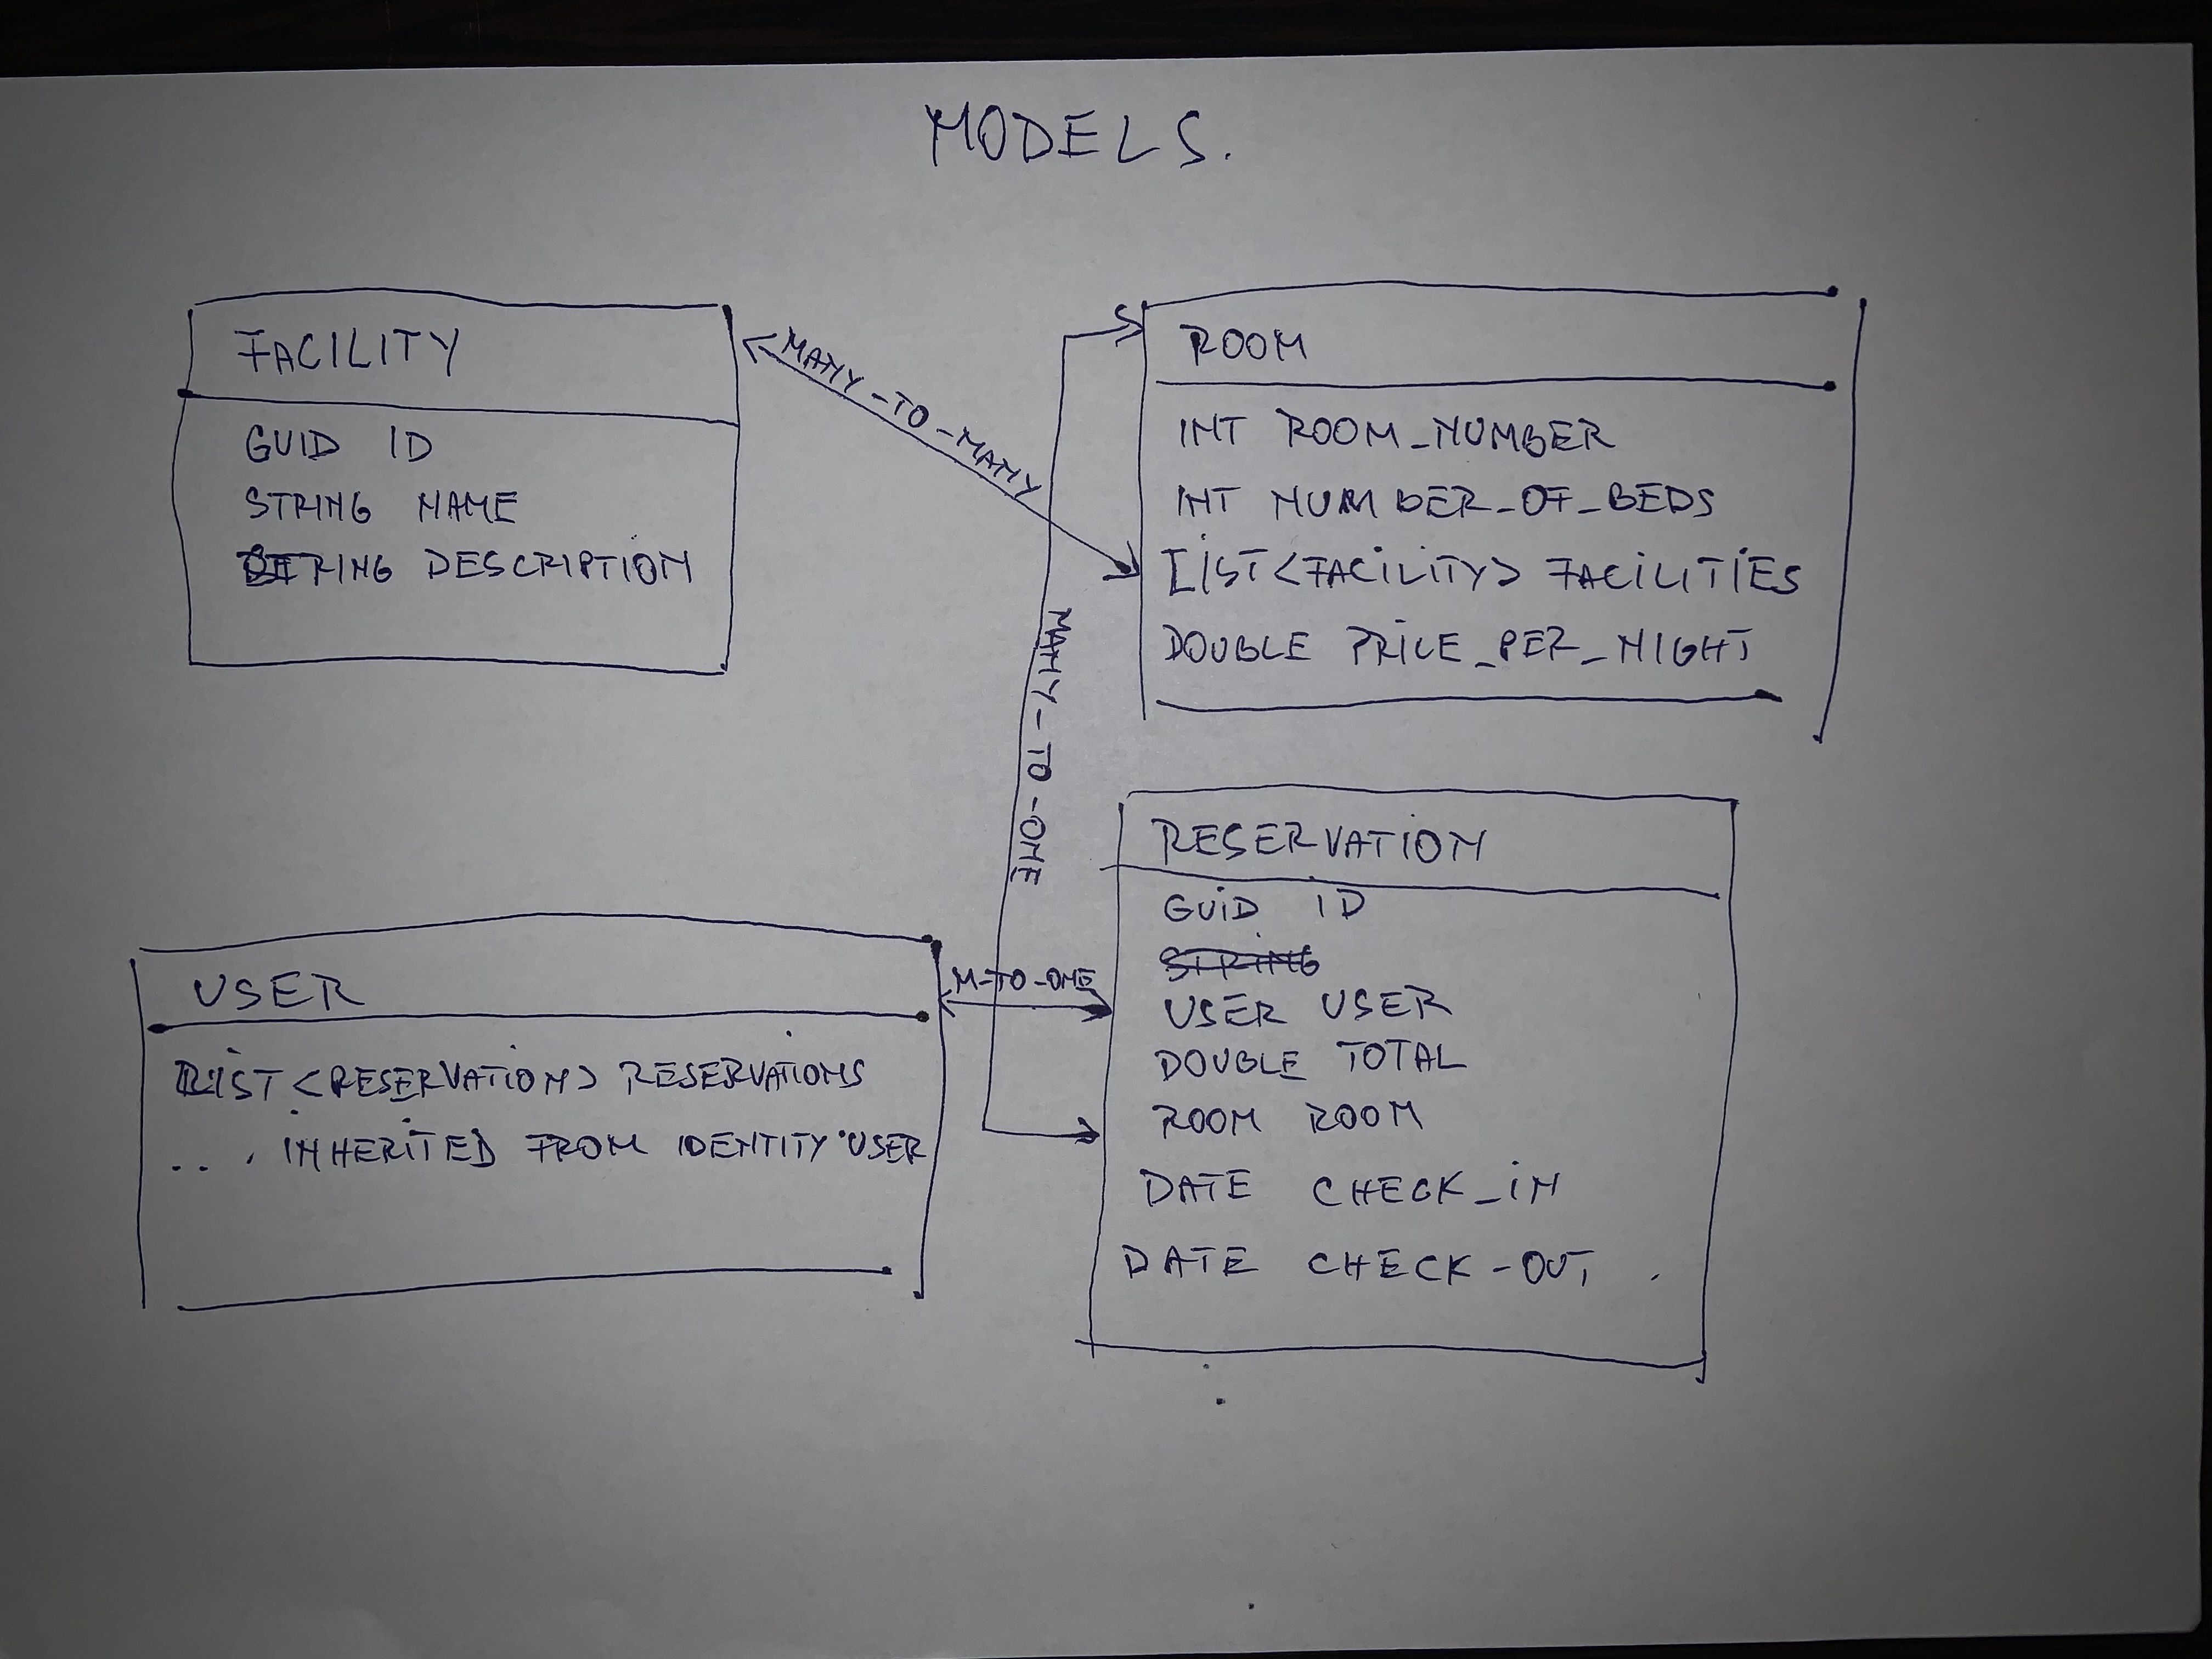 MODELS.
FACILITY
GUID ID
STRING NAME
STRING DESCRIPTION
MANY-TO-MANY
ROOM
INT ROOM_NUMBER
INT NUMBER_OF_BEDS
LIST<FACILITY> FACILITIES
DOUBLE PRICE_PER_NIGHT
MANY-TO-ONE
USER
LIST<RESERVATION> RESERVATIONS
.. , INHERITED FROM IDENTITY USER
M-TO-ONE
RESERVATION
GUID ID
STRING
USER USER
DOUBLE TOTAL
ROOM ROOM
DATE CHECK_IN
DATE CHECK-OUT